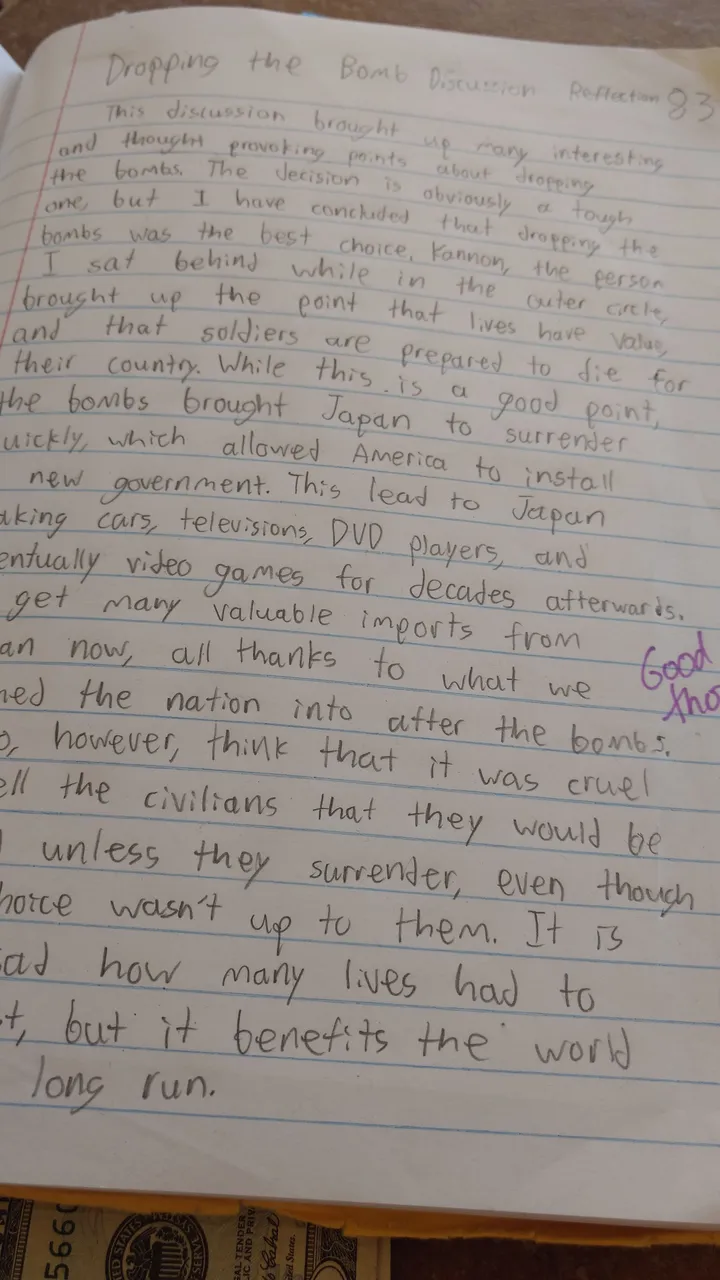 Dropping the Bomb Discussion Reflection 83
This discussion brought up many interesting
and thought provoking points about dropping
the bombs. The decision is obviously a tough
one, but I have concluded that dropping the
bombs was the best choice. Kannon, the person
I sat behind while in the outer circle,
brought up the point that lives have value,
and that soldiers are prepared to die for
their country. While this is a good point,
the bombs brought Japan to surrender
uickly, which allowed America to install
new government. This lead to Japan
aking cars, televisions, DVD players, and
entually video games for decades afterwards.
get many valuable imports from
an now, all thanks to what we
Good
ned the nation into after the bombs.
tho
o, however, think that it was cruel
ell the civilians that they would be
unless they surrender, even though
hoice wasn't up to them. It is
ad how many lives had to
t, but it benefits the world
long run.
566
UNITED STATES
LEGAL TENDER
LIC AND PRIV
Cabral
States.